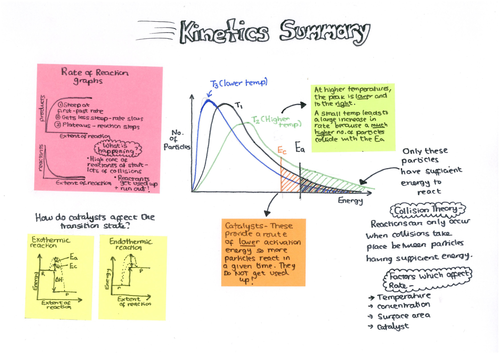 Kinetics Summary
Rate of Reaction
graphs
products
① Steep at
start - fast rate
② Gets less steep - rate slows
③ Plateaus - reaction stops
Extent of reaction
What is
happening?
reactants
• High rate as
reactants at start -
lots of collisions
• Reactants
get used up
+ run out!
Extent of reaction
How do catalysts affect the
transition state?
Exothermic
reaction
Energy
Ea
Ec
R
ΔH
P
Extent of
reaction
Endothermic
reaction
Energy
P
R
Extent of
reaction
No. of
Particles
T3 (lower temp)
T1
T2 (Higher
temp)
Ec
Ea
Energy
At higher temperatures,
the peak is lower and
to the right.
A small temp leads to
a large increase in
rate because a much
higher no. of particles
collide with the Ea
Only these
particles
have sufficient
energy to
react
Catalysts - These
provide a route
of lower activation
energy so more
particles react in
a given time. They
Do NOT get used
up!
Collision Theory -
Reactions can only occur
when collisions take
place between particles
having sufficient energy.
Factors which affect
Rate -
→ Temperature
→ concentration
→ Surface area
→ catalyst